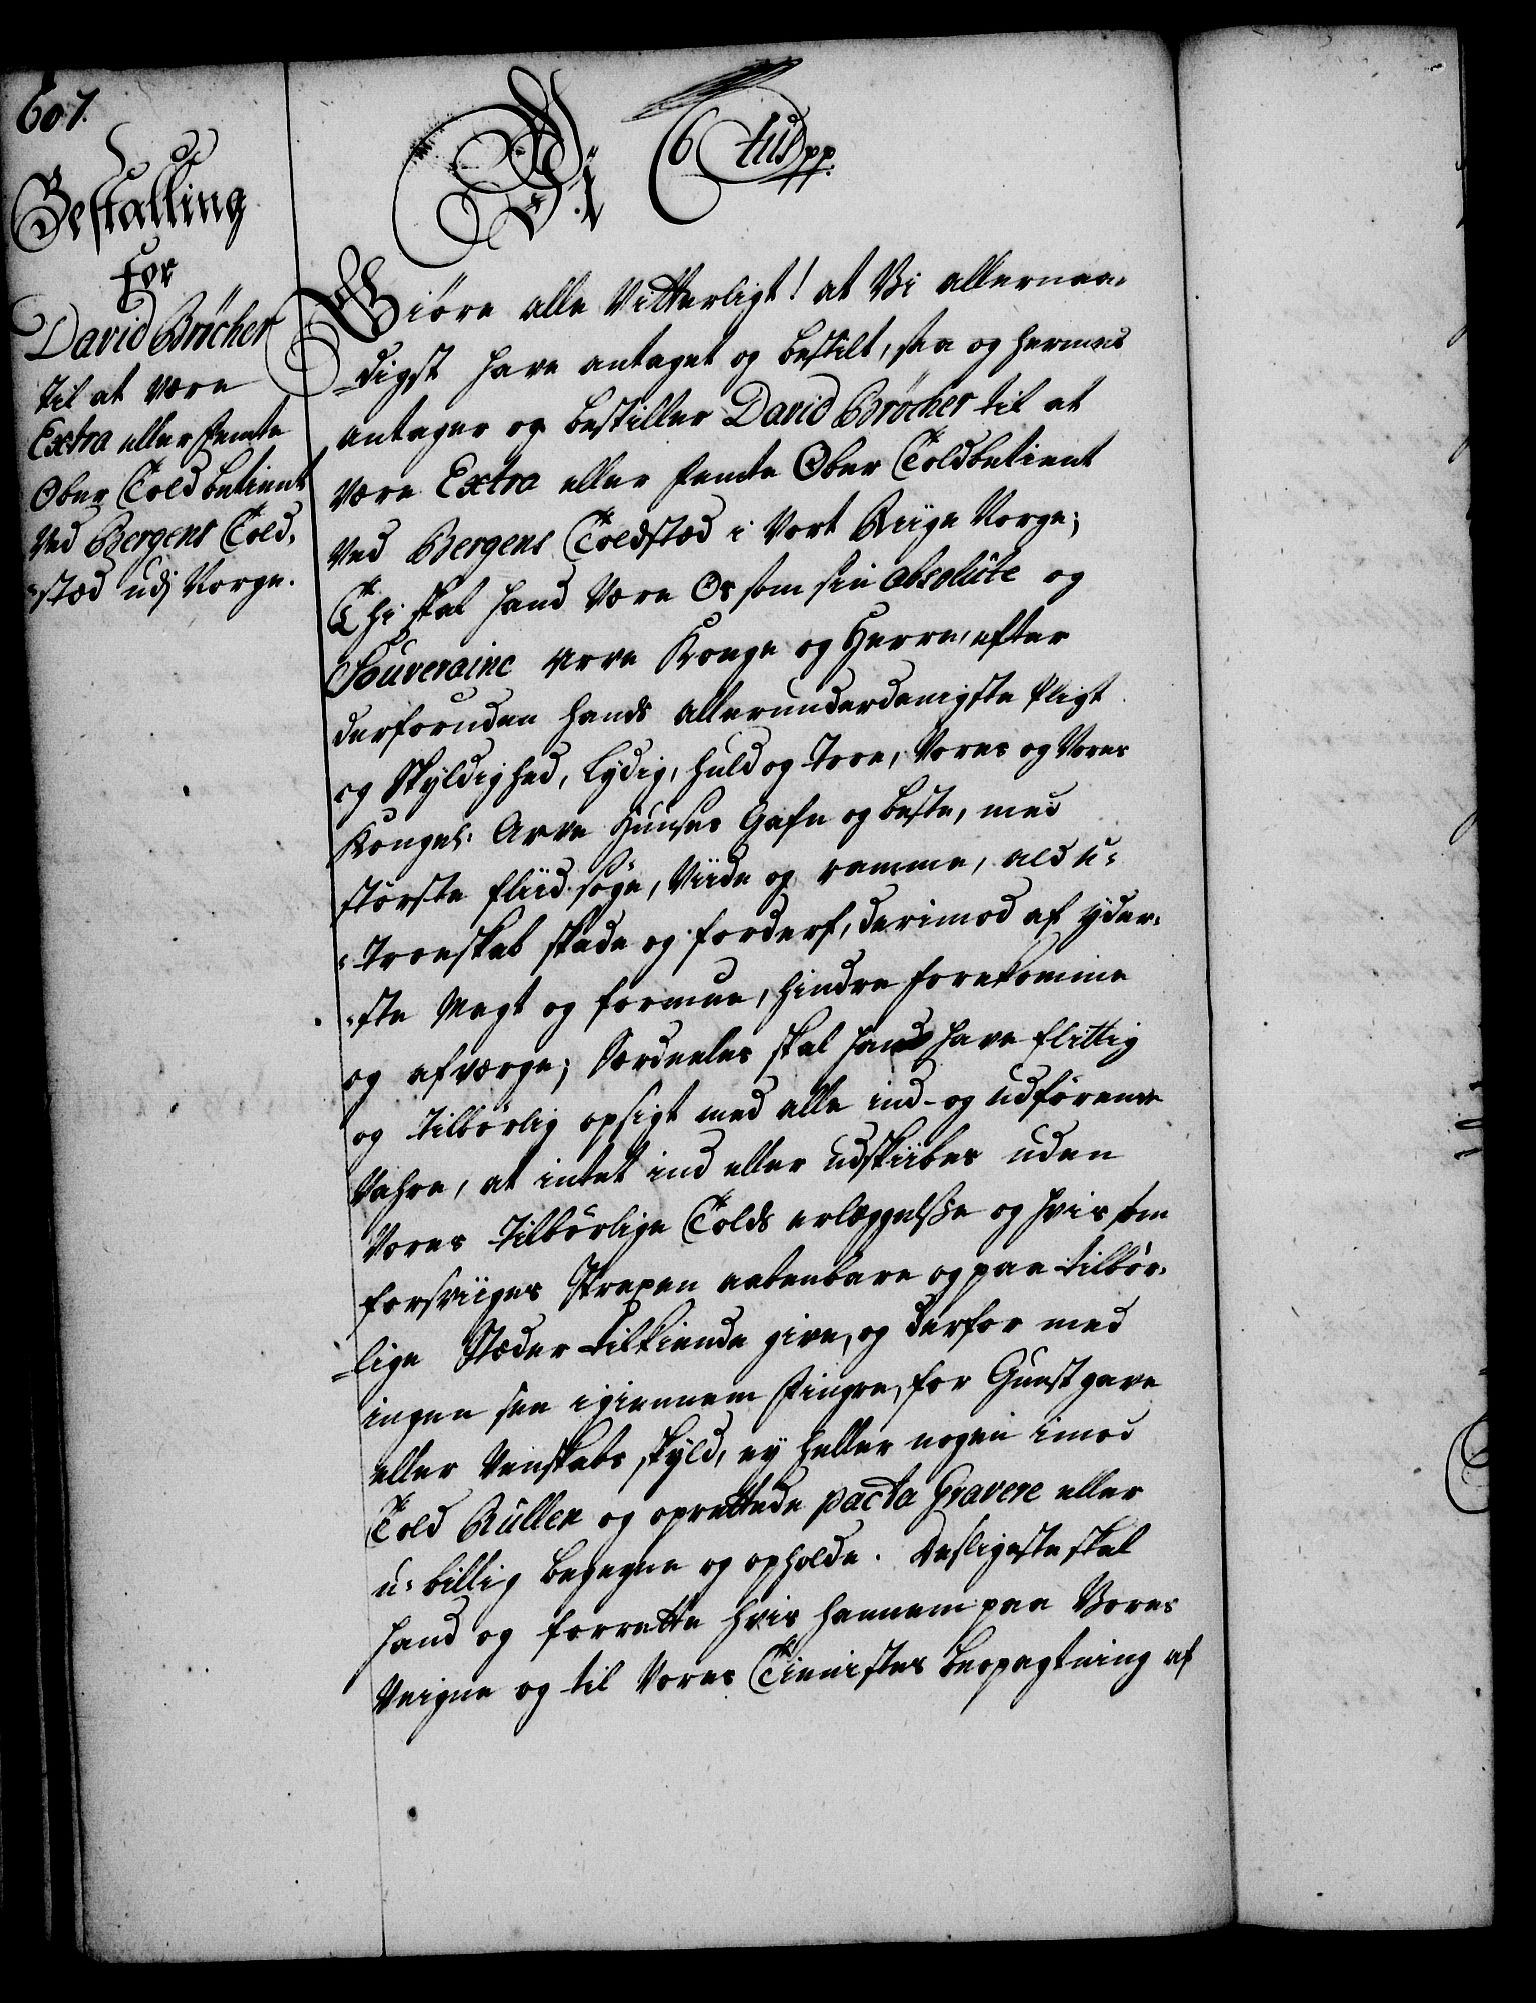 607.
Bestalling
for
David Bröcher
til at være
Extra eller femte
Ober Told betient
ved Bergens Told¬
stæd udj Norge.
Vi C 6 tus pp.
Giöre alle Vitterligt! at Vi allernaa¬
digst have antaget og bestilt, saa og hermed
antager og bestiller David Bröcher til at
være Extra eller femte Ober Toldbetient
ved Bergens Toldstæd i Vort Riige Norge;
Thi skal hand være Os som sin absolüte og
Souveraine Arve Konge og Herre, efter
derforuden hands allerunderdanigste Pligt
og Skyldighed, lydig, huld og troe, Vores og Vores
Kongel: Arve Huuses Gafn og beste, med
störste fliid söge, viide og ramme, ald u¬
troeskab skade og forderf, derimod af yder¬
ste Magt og formue, hindre forekomme
og afværge; Særdeeles skal hand have flittig
og tilbörlig opsigt med alle ind- og udförende
Vahre, at intet ind eller udskiibes uden
Vores tilbörlige Tolds erlæggelsße og hvis som
forsviiges Straxen aabenbare og paa tilbör¬
lige Stæder tilkiende give, og derfor med
ingen see igiennem fingre, for Gunst gave
eller Venskabs skyld, ey heller nogen imod
Told Rullen og oprettede pacta Gravere eller
u-billig begegne og opholde. Desligeste skal
hand og forrette hvis hannem paa Vores
Veigne og til Vores Tienistes beopagtning af